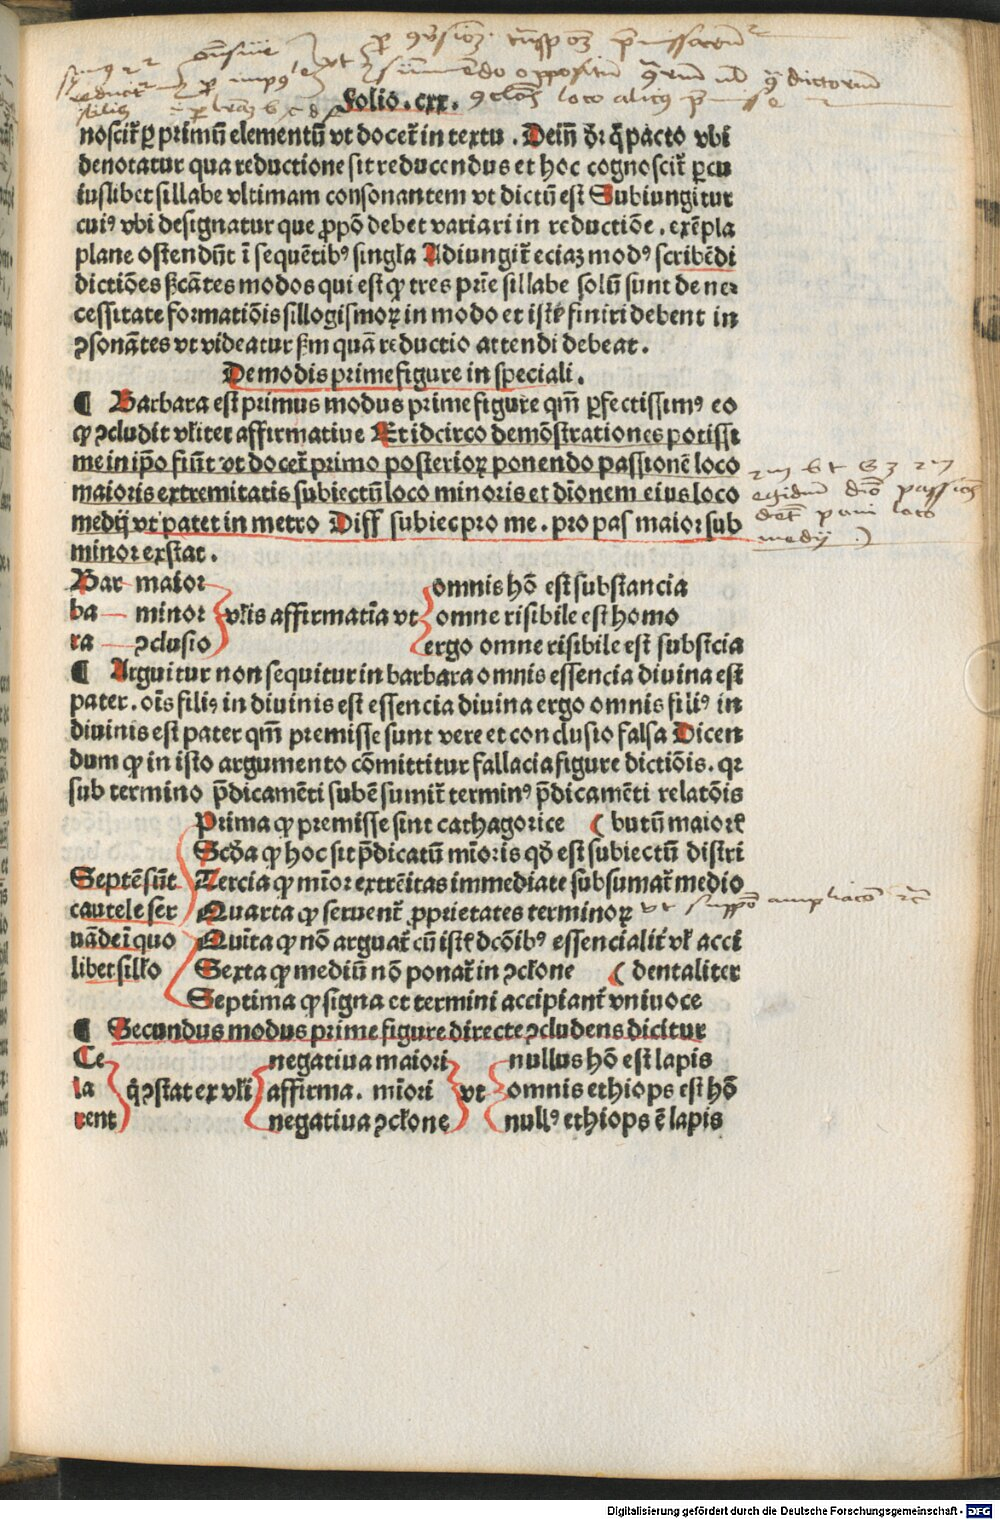 Folio. cxx.
noscit᷑ ꝑ primū elementū vt docet᷑ in textu. Dein̄ dr̄ q̄ pacto vbi
denotatur qua reductione sit reducendus et hoc cognoscit᷑ ꝑ cu
iuslibet sillabe vltimam consonantem vt dictū est Subiungitur
cuiꝰ vbi designatur que ꝓpō debet variari in reductiōe. exēpla
plane ostendūt ī sequētibꝰ singła Adiungit᷑ eciaz modꝰ scribēdi
dictiōes sc̄ātes modos qui est ꝙ tres prīe sillabe solū sunt de ne
cessitate formatiōis sillogismoꝝ in modo et iste᷑ finiri debent in
ꝯsonātes vt videatur sm̄ quā reductio attendi debeat.
De modis prime figure in speciali.
¶ Barbara est primus modus prime figure qm̄ ꝑfectissimꝰ eo
ꝙ ꝯcludit vl̄iter affirmatiue Et idcirco demōstrationes potissi
me in ip̄o fiūt vt docet᷑ primo posterioꝝ ponendo passionē loco
maioris extremitatis subiectū loco minoris et dīonem eius loco
medij vt patet in metro Diff subiec pro me. pro pas maior sub
minor exstat.
Bar maior omnis hō est substancia
ba minor vl̄is affirmatīa vt omne risibile est homo
ra ꝯclusio ergo omne risibile est substcia
¶ Arguitur non sequitur in barbara omnis essencia diuina est
pater. oīs filiꝰ in diuinis est essencia diuina ergo omnis filiꝰ in
diuinis est pater qm̄ premisse sunt vere et conclusio falsa Dicen
dum ꝙ in isto argumento cōmittitur fallacia figure dictiōis. qꝛ
sub termino p̄dicamēti subē sumit᷑ terminꝰ p̄dicamēti relatōis
Prima ꝙ premisse sint cathagorice ( butū maiore᷑
Scd̄a ꝙ hoc sit p̄dicatū mīoris qd̄ est subiectū distri
Septē sūt Tercia ꝙ mīor extrēitas immediate subsumat᷑ medio
cautele ser Quarta ꝙ seruent᷑ ꝓprietates terminoꝝ
uāde ī quo Quīta ꝙ nō arguat᷑ cū iste᷑ dcōibꝰ essencialit᷑ vl̄ acci
libet sil̄lo Sexta ꝙ mediū nō ponat᷑ in ꝯcl̄one ( dentaliter
Septima ꝙ signa et termini accipiant᷑ vniuoce
¶ Secundus modus prime figure directe ꝯcludens dicitur
Ce negatiua maiori nullus hō est lapis
la q̄ ꝯstat ex vl̄i affirma. mīori vt omnis ethiops est hō
rent negatiua ꝯcl̄one nullꝰ ethiops ē lapis
Digitalisierung gefördert durch die Deutsche Forschungsgemeinschaft - DFG